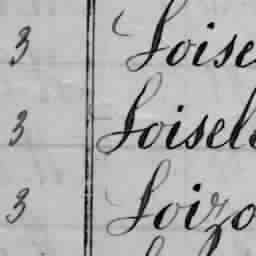 3 Loise
3 Loisel
3 Loizo